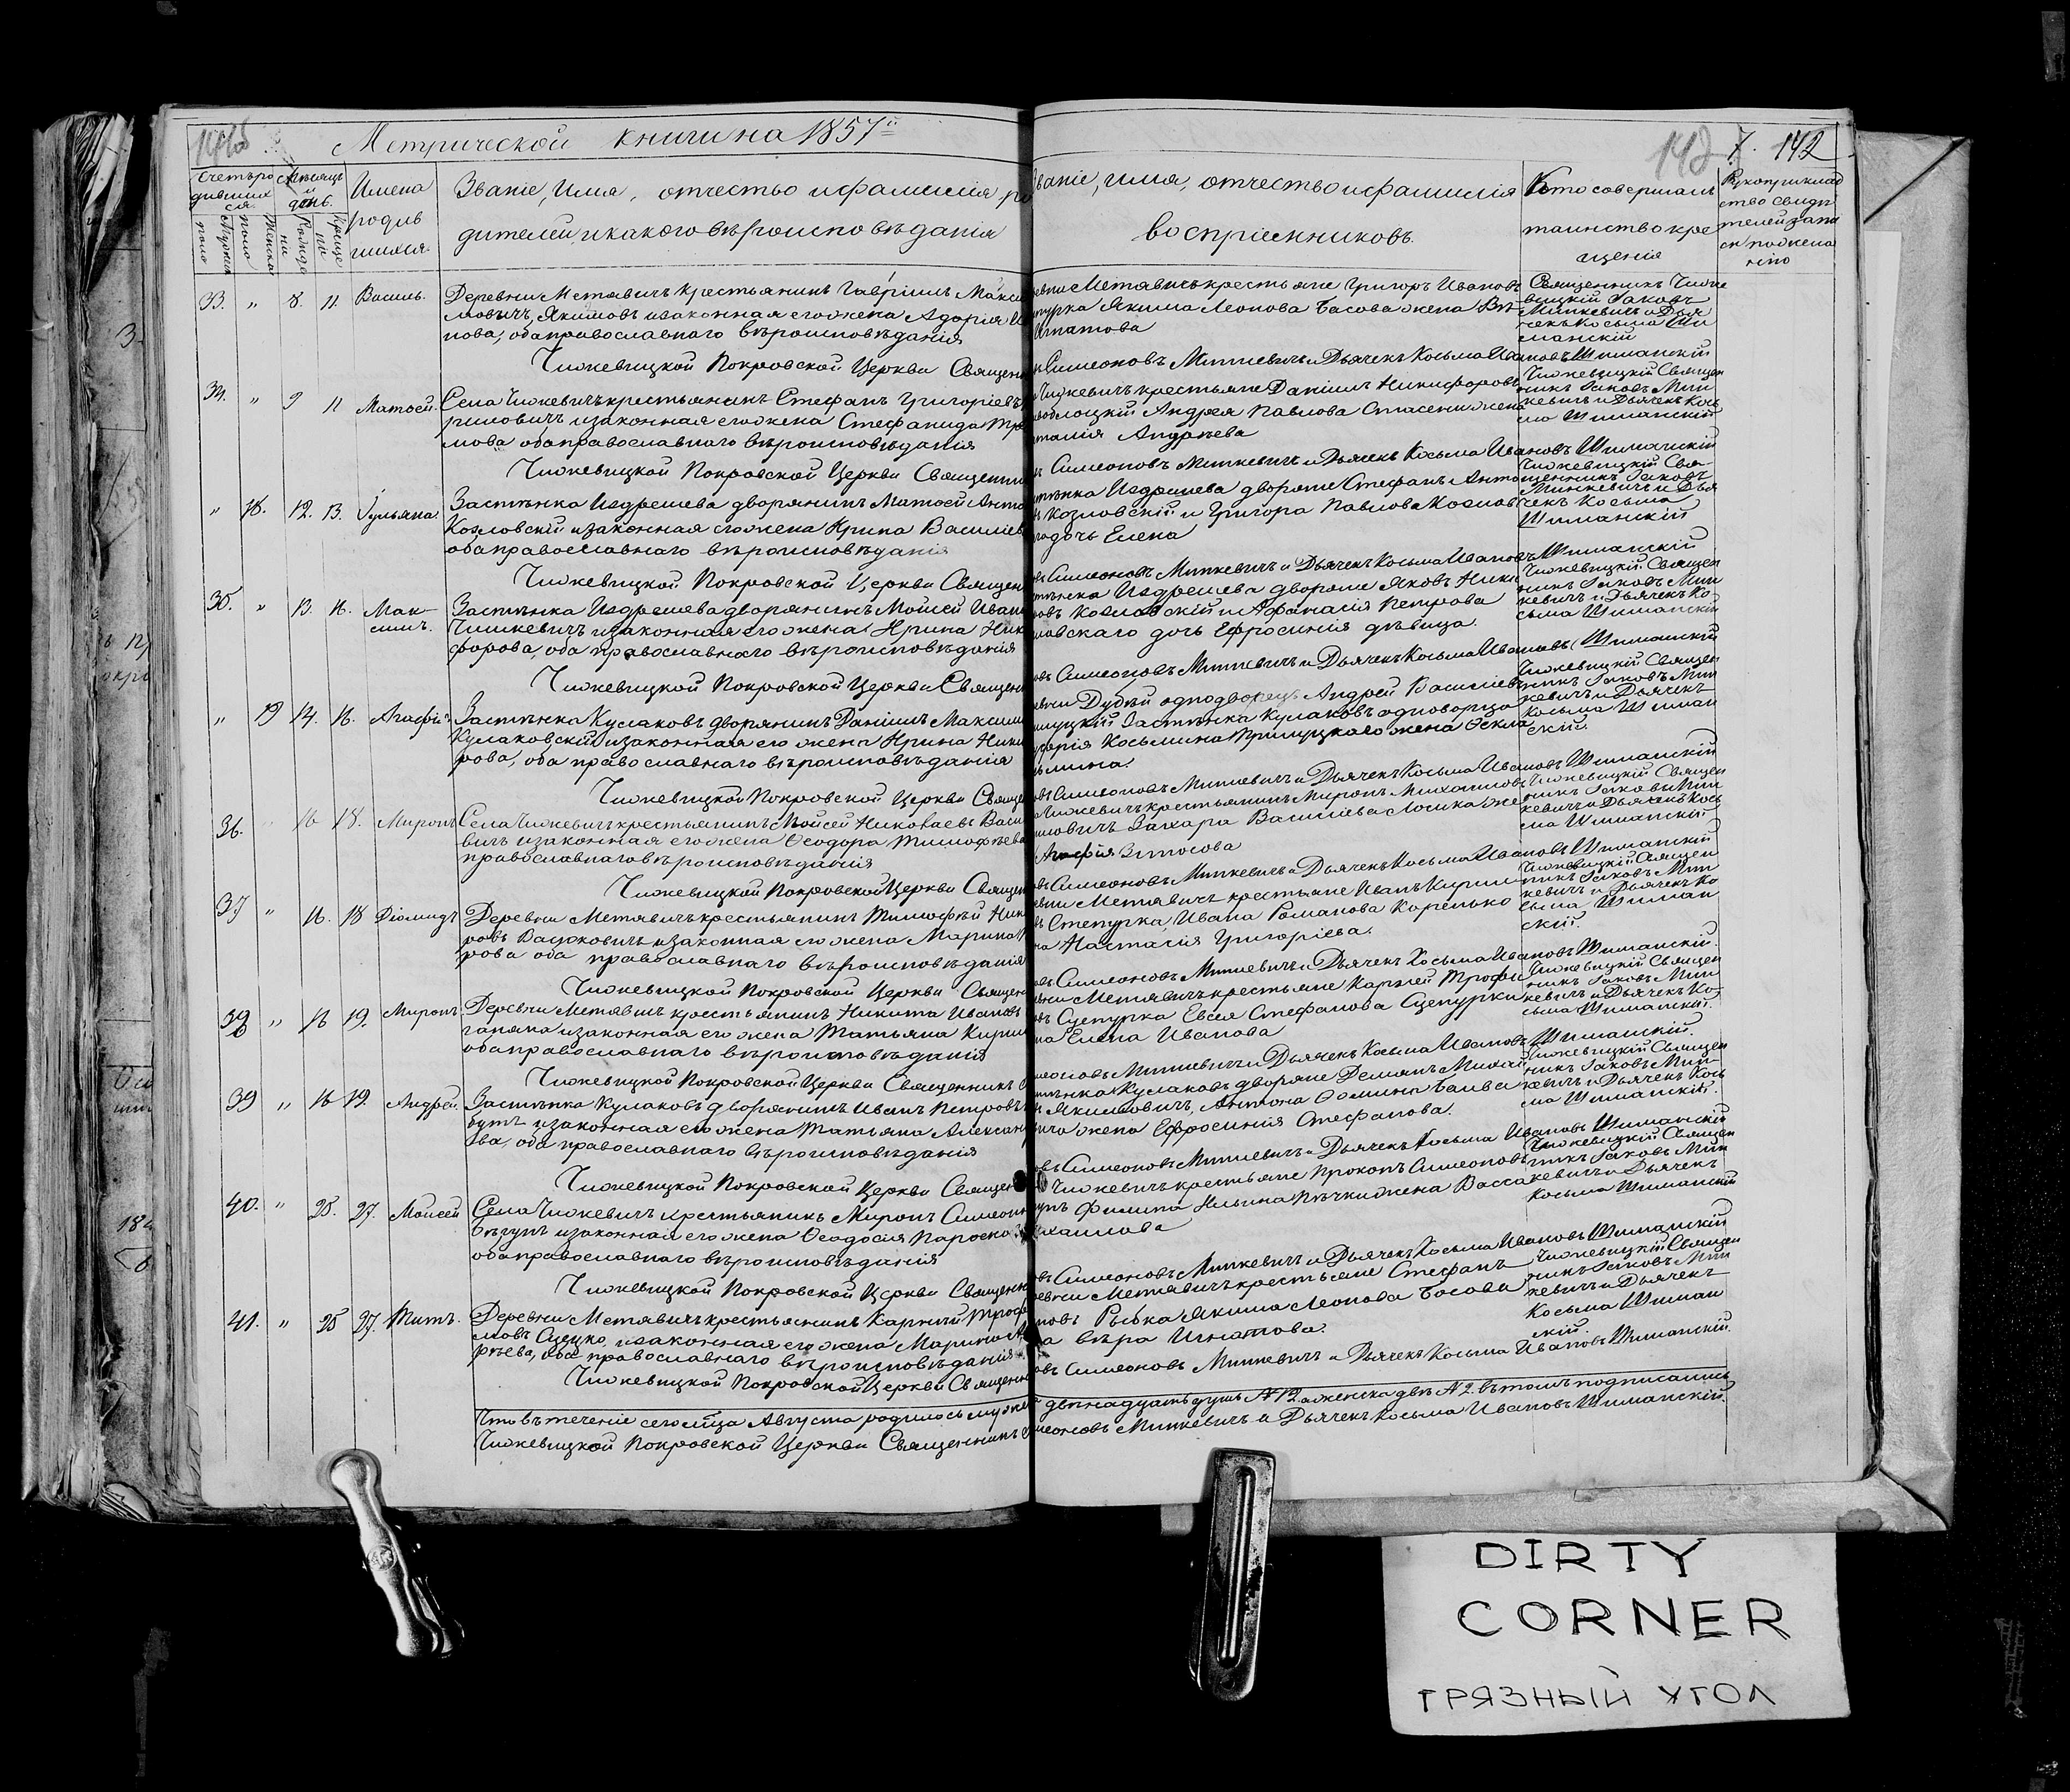 Метрической книги на 1857й
142
7. 142
Счетъ ро
дивших
ся.
Мужеска
пола
Женска
пола
Мѣсяцъ
и
день.
Рожде
нія
Креще
нія
Имена
родив
шихся
Званіе, Имя, отчество и фамилія ро
дителей, и какого вѣроисповѣданія
Званіе, имя, отчество и фамилія
воспріемниковъ.
Кто совершалъ
таинство кре
щенія
Рукоприклад
ство свидѣ
телей записи
по желанію
33. „ 8. 11. Василь.
Деревни Метявичъ крестьянинъ Гавріилъ Макси
мовичъ, Якимовъ и законная его жена
нова, оба православнаго вѣроисповѣданія
Метявичъ крестьяне Григоръ Ивановъ
Якима Леонова Басова жена Вѣ
Игнатова
Священникъ Чиже
вицкій Іаковъ
Минкевичъ и Дья
чекъ Косьма Ши
манскій
Чижевицкой Покровской Церкви Священ
Симеоновъ Минкевичъ и Дьячекъ Косьма Ивановъ Шиманскій
34. „ 9 11 Матѳей.
Села Чижевичъ крестьянинъ Стефанъ Григоріевъ
риновичъ и законная его жена Стефанида Тро
мова оба православнаго вѣроисповѣданія
Чижевичъ крестьяне Даніилъ Никифоровъ
Андрея Павлова жена
талія Андреева
Чижевицкій Священ
никъ Іаковъ Мин
кевичъ и Дьячекъ Кось
ма Шиманскій
Чижевицкой Покровской Церкви Священни
Симеоновъ Минкевичъ и Дьячекъ Косьма Ивановъ Шиманскій
„ 18. 12. 13. Іульяна
Застѣнка Издрешева дворянинъ Матѳей Анто
Козловскій и законная его жена Ирина Василіев
оба православнаго вѣроисповѣданія
Издрешева дворяне Стефанъ Анто
Козловскій и Григора Павлова Козлов
дочь Елена
Чижевицкій Свя-
щенникъ Іаковъ
Минкевичъ и Дья
чекъ Косьма
Шиманскій
Чижевицкой Покровской Церкви Священ
Симеоновъ Минкевичъ и Дьячекъ Косьма Ивановъ Шиманскій
35. „ 13. 16. Мак-
симъ.
Застѣнка Издрешева дворянинъ Мойсей Иван
Чишкевичъ и законная его жена Ирина Ник
форова, оба православнаго вѣроисповѣданія
Издрешева дворяне Яковъ Ники
ровъ Козловскій и Афанасія Петрова
ловскаго дочь Ефросинія дѣвица.
Чижевицкій Священ
никъ Іаковъ Мин
кевичъ и Дьячекъ Ко
сьма Шиманскій
Чижевицкой Покровской Церкви Священ
Симеоновъ Минкевичъ и Дьячекъ Косьма Ивановъ Шиманскій
„ 19 14. 16. Агафія
Застѣнка Кулаковъ дворянинъ Даніилъ Максим
Кулаковскій и законная его жена Ирина Ники
рова, оба православнаго вѣроисповѣданія
Дубѣй однодворецъ Андрей Василіев
Застѣнка Кулаковъ однодворца
Косьмина Прилуцкаго жена Ѳекла
мина.
Чижевицкій Священ
никъ Іаковъ Мин
кевичъ и Дьячекъ
Косьма Шиман
скій.
Чижевицкой Покровской Церкви Свяще
Симеоновъ Минкевичъ и Дьячекъ Косьма Ивановъ Шиманскій
36. 16 18. Миронъ
Села Чижевичъ крестьянинъ Мойсей Николаевъ Васи
вичъ и законная его жена Ѳеодора Тимофѣева
православнаго вѣроисповѣданія
Чижевичъ крестьянинъ Миронъ Михайловъ
Захара Василіева Лосика же
Агафія
Чижевицкій Священ
никъ Іаковъ Мин
кевичъ и Дьячекъ Кось
ма Шиманскій
Чижевицкой Покровской Церкви Священ
Симеоновъ Минкевичъ и Дьячекъ Косьма Ивановъ Шиманскій
37 „ 16. 18 Діомидъ
Деревни Метявичъ крестьянинъ Тимофѣй Ник
ровъ Васюковичъ и законная его жена Марина
рова оба православнаго вѣроисповѣданія
Метявичъ крестьяне Иванъ Кирил
Степурка, Ивана Романова Коренько
на Настасія Григоріева.
Чижевицкій Священ
никъ Іаковъ Мин
кевичъ и Дьячекъ Ко
сьма Шиман
скій.
Чижевицкой Покровской Церкви Священ
Симеоновъ Минкевичъ и Дьячекъ Косьма Ивановъ Шиманскій.
38 „ 16 19. Миронъ
Деревни Метявичъ крестьянинъ Никита Ивановъ
и законная его жена Татьяна Кирил
оба православнаго вѣроисповѣданія
Метявичъ крестьяне Карней Трофи
Сцепурка Евсея Стефанова Сцепурки
на Елена Иванова
Чижевицкій Священ
никъ Іаковъ Мин
кевичъ и Дьячекъ Ко-
сьма Шиманскій.
Чижевицкой Покровской Церкви Священникъ
Симеоновъ Минкевичъ и Дьячекъ Косьма Ивановъ Шиманскій.
39 „ 16 19. Андрей.
Застѣнка Кулаковъ дворянинъ Иванъ Петровъ
и законная его жена Татьяна Александ
ва, оба православнаго вѣроисповѣданія
Кулаковъ дворяне Демянъ Михай
Якимовичъ, Антона Ѳомина
жена Ефросинія Стефанова.
Чижевицкій Священ
никъ Іаковъ Мин-
кевичъ и Дьячекъ Кось
ма Шиманскій.
Чижевицкой Покровской Церкви Священ
Симеоновъ Минкевичъ и Дьячекъ Косьма Ивановъ Шиманскій
40. „ 25. 27. Мойсей
Села Чижевичъ крестьянинъ Миронъ Симеон
Бѣгунъ и законная его жена Ѳеодосія
оба православнаго вѣроисповѣданія
Чижевичъ крестьяне Прокопъ Симеоновъ
Филипа Ильина жена Васса
хаилова
Чижевицкій Священ
никъ Іаковъ Мин
кевичъ и Дьячекъ
Косьма Шиманскій
Чижевицкой Покровской Церкви Священ
Симеоновъ Минкевичъ и Дьячекъ Косьма Ивановъ Шиманскій
41. „ 25 27. Титъ.
Деревни Метявичъ крестьянинъ Карней Троф
мовъ и законная его жена Марина
рѣева, оба православнаго вѣроисповѣданія
Метявичъ крестьяне Стефанъ
Рыбка Якима Леонова Босова
Вѣра Игнатова.
Чижевицкій Священ
никъ Іаковъ Мин
кевичъ и Дьячекъ
Косьма Шиман
скій.
Чижевицкой Покровской Церкви Священн
Симеоновъ Минкевичъ и Дьячекъ Косьма Ивановъ Шиманскій.
Что въ теченіе сего мѣсяца Августа родилось муже двѣнадцать душъ № 12 а женска двѣ № 2. въ томъ подписались
Чижевицкой Покровской Церкви Священникъ Симеоновъ Минкевичъ и Дьячекъ Косьма Ивановъ Шиманскій.
DIRTY
CORNER
ГРЯЗНЫЙ УГОЛ